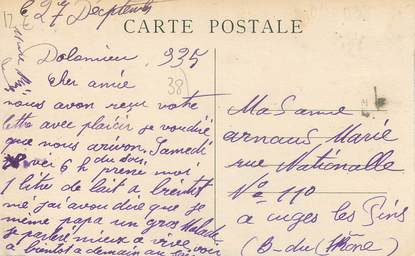 CARTE POSTALE
Le 27 Decptembre
Dolomieu 335
38
Cher amie
nous avon reçu votre
lettre avec plaisir je voudiré
que nous arivon. Samedi
soir 6 h du soir. prené moi
1 litre de lait a bientot
mé j'ai avou dire que je
même papa un gros Malade
je parleré mieux a vive voir
a bientôt a demain au
Madame
arnaud Marie
rue Nationalle
Nº 110
a cuges les Pins
(B-du-Rhône)